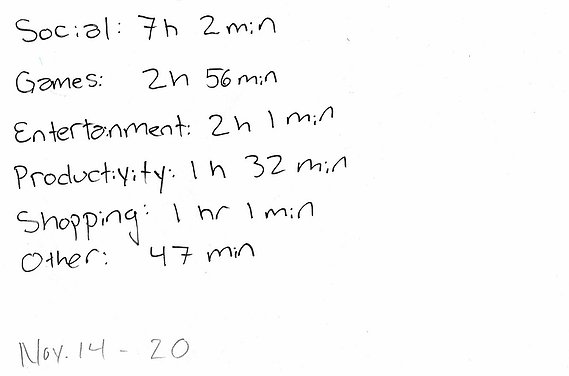 Social: 7h 2min
Games: 2h 56min
Entertainment: 2h 1min
Productivity: 1h 32 min
Shopping: 1 hr 1min
Other: 47 min
Nov. 14 - 20